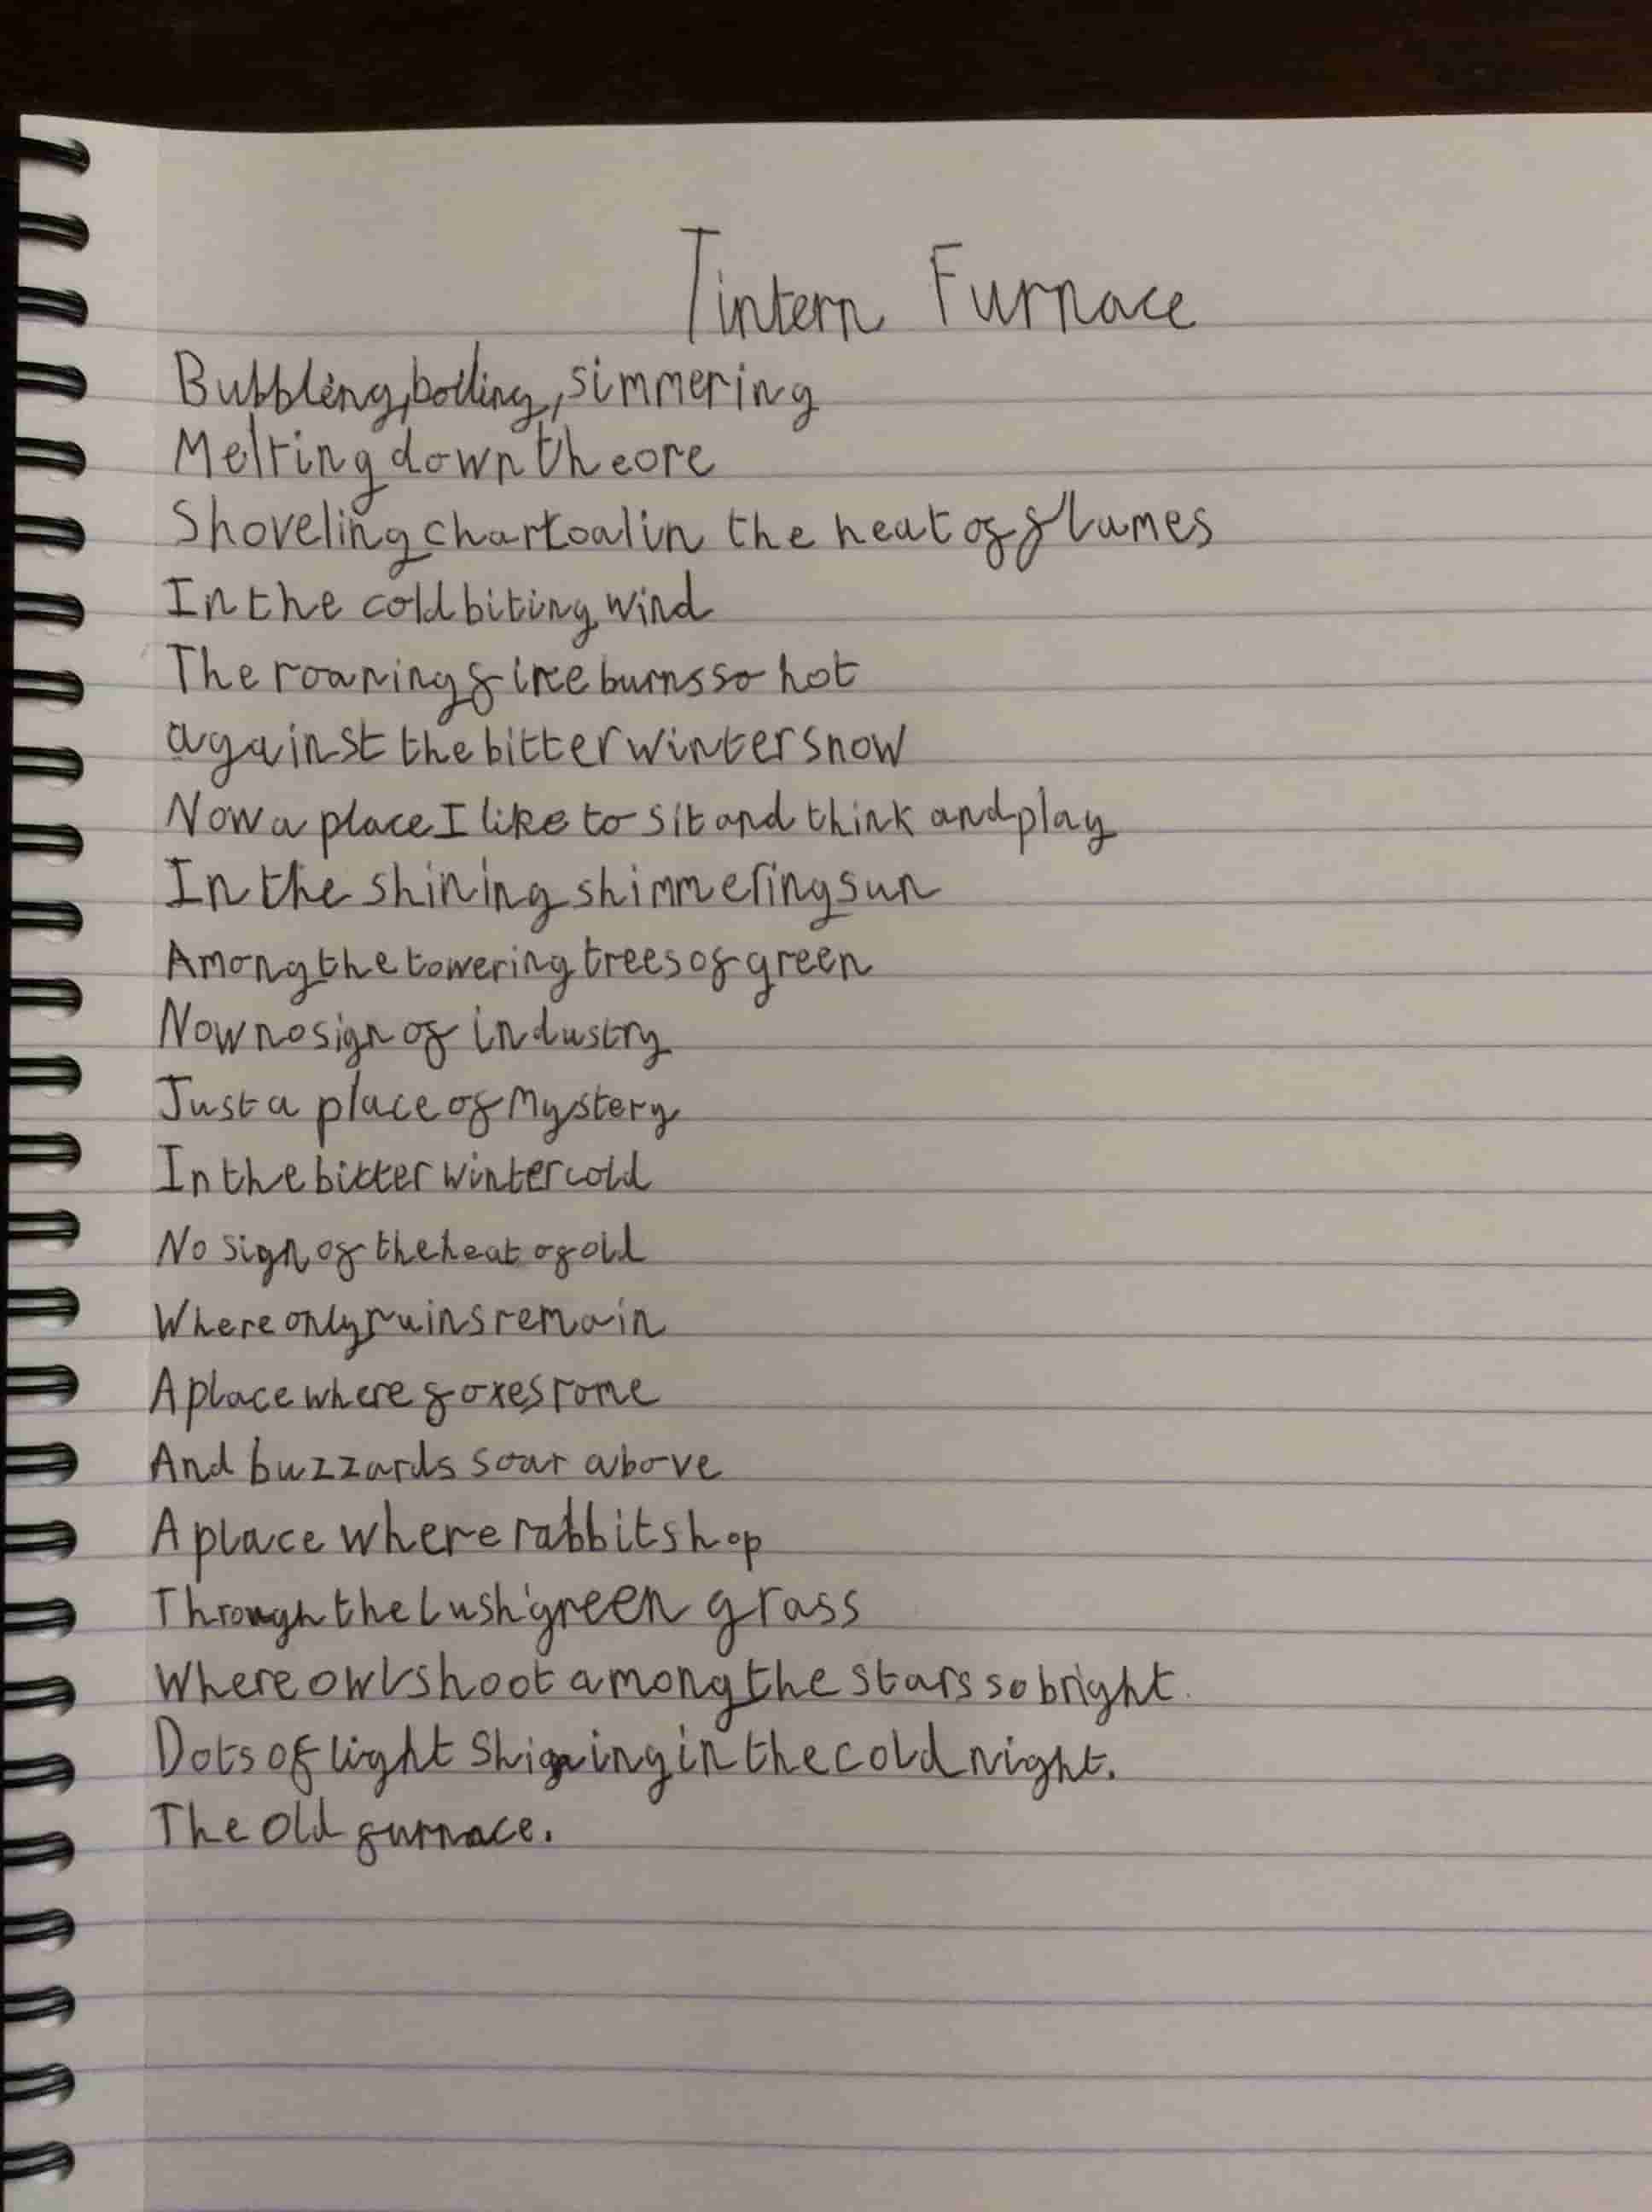 Tintern Furnace
Bubbling, boiling, simmering
Melting down the ore
Shoveling chartoal in the heat of flames
In the cold biting wind
The roaring fire burns so hot
against the bitter winter snow
Now a place I like to sit and think and play
In the shining shimmering sun
Among the towering trees of green
Now no sign of industry
Just a place of Mystery
In the bitter winter cold
No sign of the heat of old
Where only ruins remain
A place where foxes rome
And buzzards soar above
A place where rabbits hop
Through the lush green grass
Where owls hoot among the stars so bright.
Dots of light Shining in the cold night.
The Old furnace.